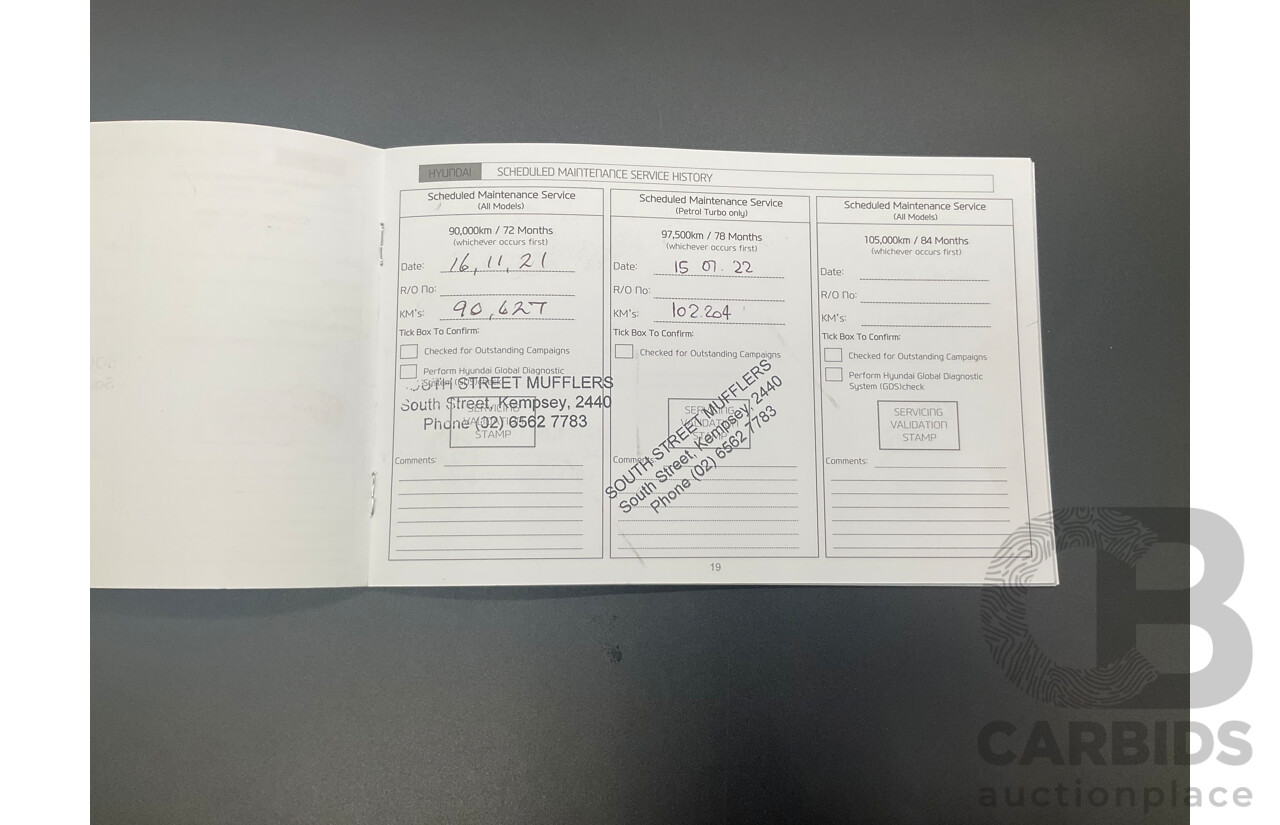 HYUNDAI SCHEDULED MAINTENANCE SERVICE HISTORY
Scheduled Maintenance Service
(All Models)
90,000km / 72 Months
(whichever occurs first)
Date: 16,11,21
R/O No:
KM's: 90,627
Tick Box To Confirm:
Checked for Outstanding Campaigns
Perform Hyundai Global Diagnostic
System (GDS)check
SOUTH STREET MUFFLERS
South Street, Kempsey, 2440
Phone (02) 6562 7783
SERVICING
VALIDATION
STAMP
Comments:
Scheduled Maintenance Service
(Petrol Turbo only)
97,500km / 78 Months
(whichever occurs first)
Date: 15 07. 22
R/O No:
KM's: 102.204
Tick Box To Confirm:
Checked for Outstanding Campaigns
SERVICING
VALIDATION
STAMP
SOUTH STREET MUFFLERS
South Street, Kempsey, 2440
Phone (02) 6562 7783
Comments:
Scheduled Maintenance Service
(All Models)
105,000km / 84 Months
(whichever occurs first)
Date:
R/O No:
KM's:
Tick Box To Confirm:
Checked for Outstanding Campaigns
Perform Hyundai Global Diagnostic
System (GDS)check
SERVICING
VALIDATION
STAMP
Comments:
19
CB
CARBIDS
auctionplace